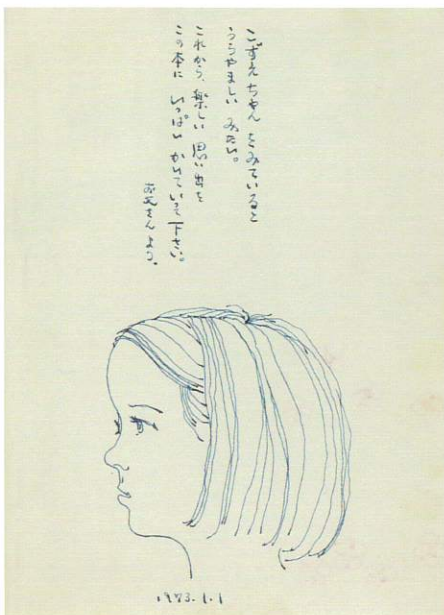 こずえちゃんをみていると
うらやましい みたい。
これから、楽しい 思い出を
この本に いっぱい かいていって下さい。
お父さんより。
1973.1.1